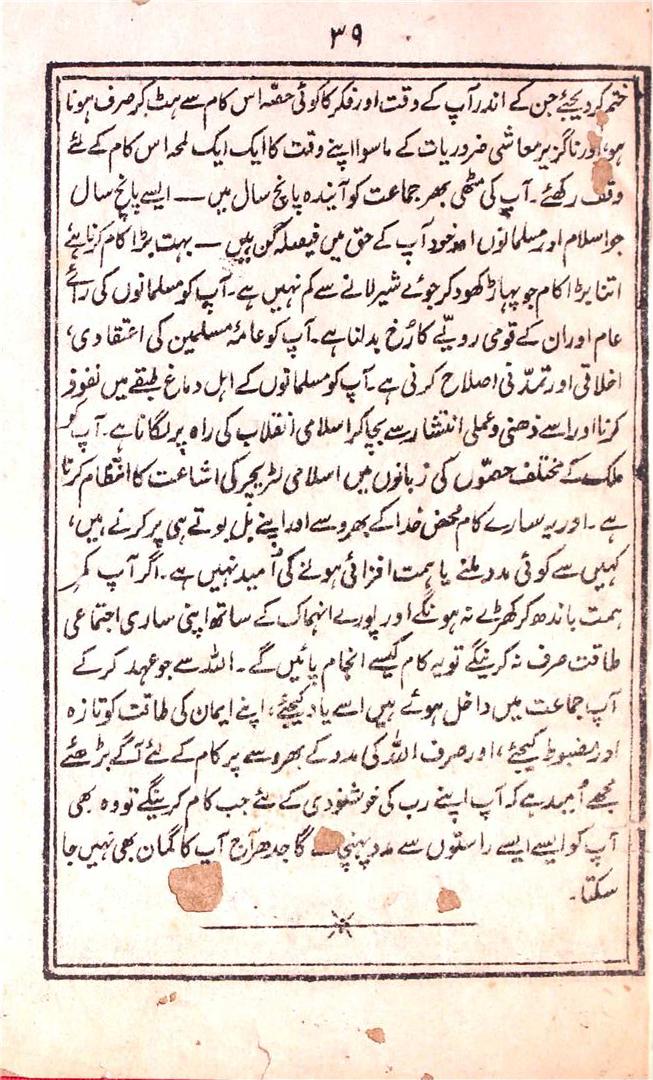 ۳۹
ختم کر دیجئے جن کے اندر آپ کے وقت اور فکر کا کوئی حصّہ اس کام سے ہٹ کر صرف ہونا
ہو، اور ناگزیر معاشی ضروریات کے ماسوا اپنے وقت کا ایک ایک لمحہ اس کام کے لئے
وقف رکھئے۔ آپ کی مٹھی بھر جماعت کو آیندہ پانچ سال میں — ایسے پانچ سال
جو اسلام اور مسلمانوں اور خود آپ کے حق میں فیصلہ کن ہیں — بہت بڑا کام کرنا ہے
اتنا بڑا کام جو پہاڑ کھود کر جوئے شیر لانے سے کم نہیں ہے۔ آپ کو مسلمانوں کی رائے
عام اور ان کے قومی رویّے کا رُخ بدلنا ہے۔ آپ کو عامۂ مسلمین کی اعتقادی،
اخلاقی اور تمدّنی اصلاح کرنی ہے۔ آپ کو مسلمانوں کے اہل دماغ طبقے میں نفوذ
کرنا اور اسے ذھنی و عملی انتشار سے بچا کر اسلامی انقلاب کی راہ پر لگانا ہے۔ آپ کو
ملک کے مختلف حصّوں کی زبانوں میں اسلامی لٹریچر کی اشاعت کا انتظام کرنا
ہے۔ اور یہ سارے کام محض خدا کے بھروسے اور اپنے بَل بوتے ہی پر کرنے ہیں،
کہیں سے کوئی مدد ملنے یا ہمت افزائی ہونے کی اُمید نہیں ہے۔ اگر آپ کمر
ہمت باندھ کر کھڑے نہ ہونگے اور پورے انہماک کے ساتھ اپنی ساری اجتماعی
طاقت صرف نہ کرینگے تو یہ کام کیسے انجام پائیں گے۔ اللہ سے جو عہد کر کے
آپ جماعت میں داخل ہوئے ہیں اسے یاد کیجئے، اپنے ایمان کی طاقت کو تازہ
اور مضبوط کیجئے، اور صرف اللہ کی مدد کے بھروسے پر کام کے لئے آگے بڑھئے
مجھے اُمید ہے کہ آپ اپنے رب کی خوشنودی کے لئے جب کام کرینگے تو وہ بھی
آپ کو ایسے ایسے راستوں سے مدد پہنچائے گا جدھر آج آپ کا گمان بھی نہیں جا
سکتا۔